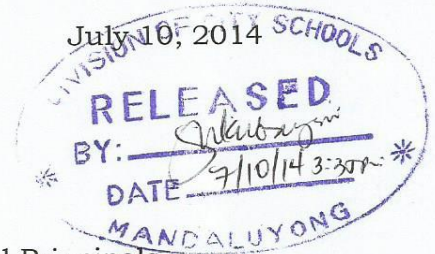 July 10, 2014
DIVISION OF CITY SCHOOLS
RELEASED
BY:
DATE 7/10/14 3:30p.
MANDALUYONG
Principals